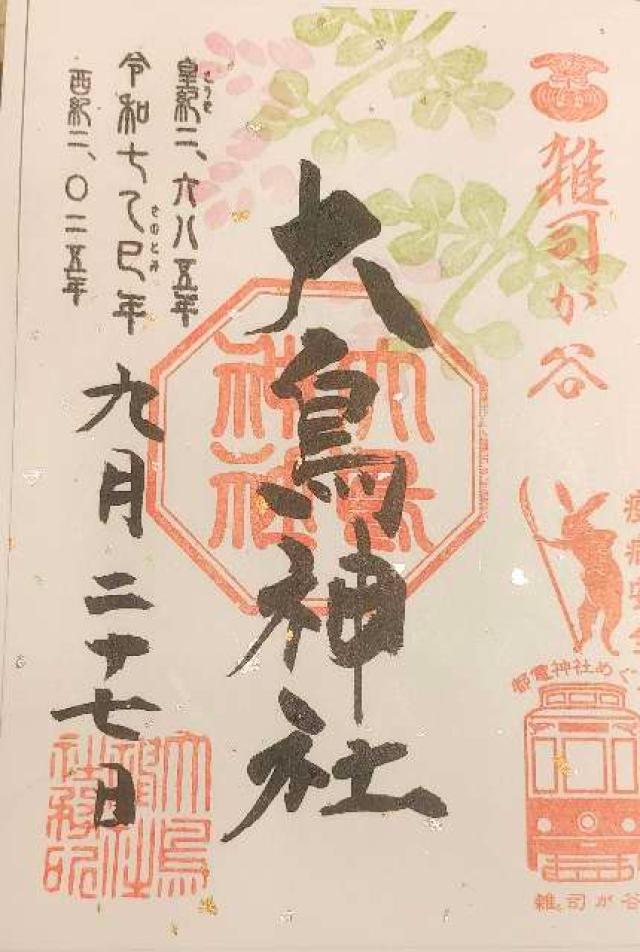 雑司が谷
大鳥神社
皇紀二、六八五年
こうき
令和七乙巳年
きのとみ
西紀二、〇二五年
九月二十七日
大鳥
神社
都電神社めぐ
雑司が谷